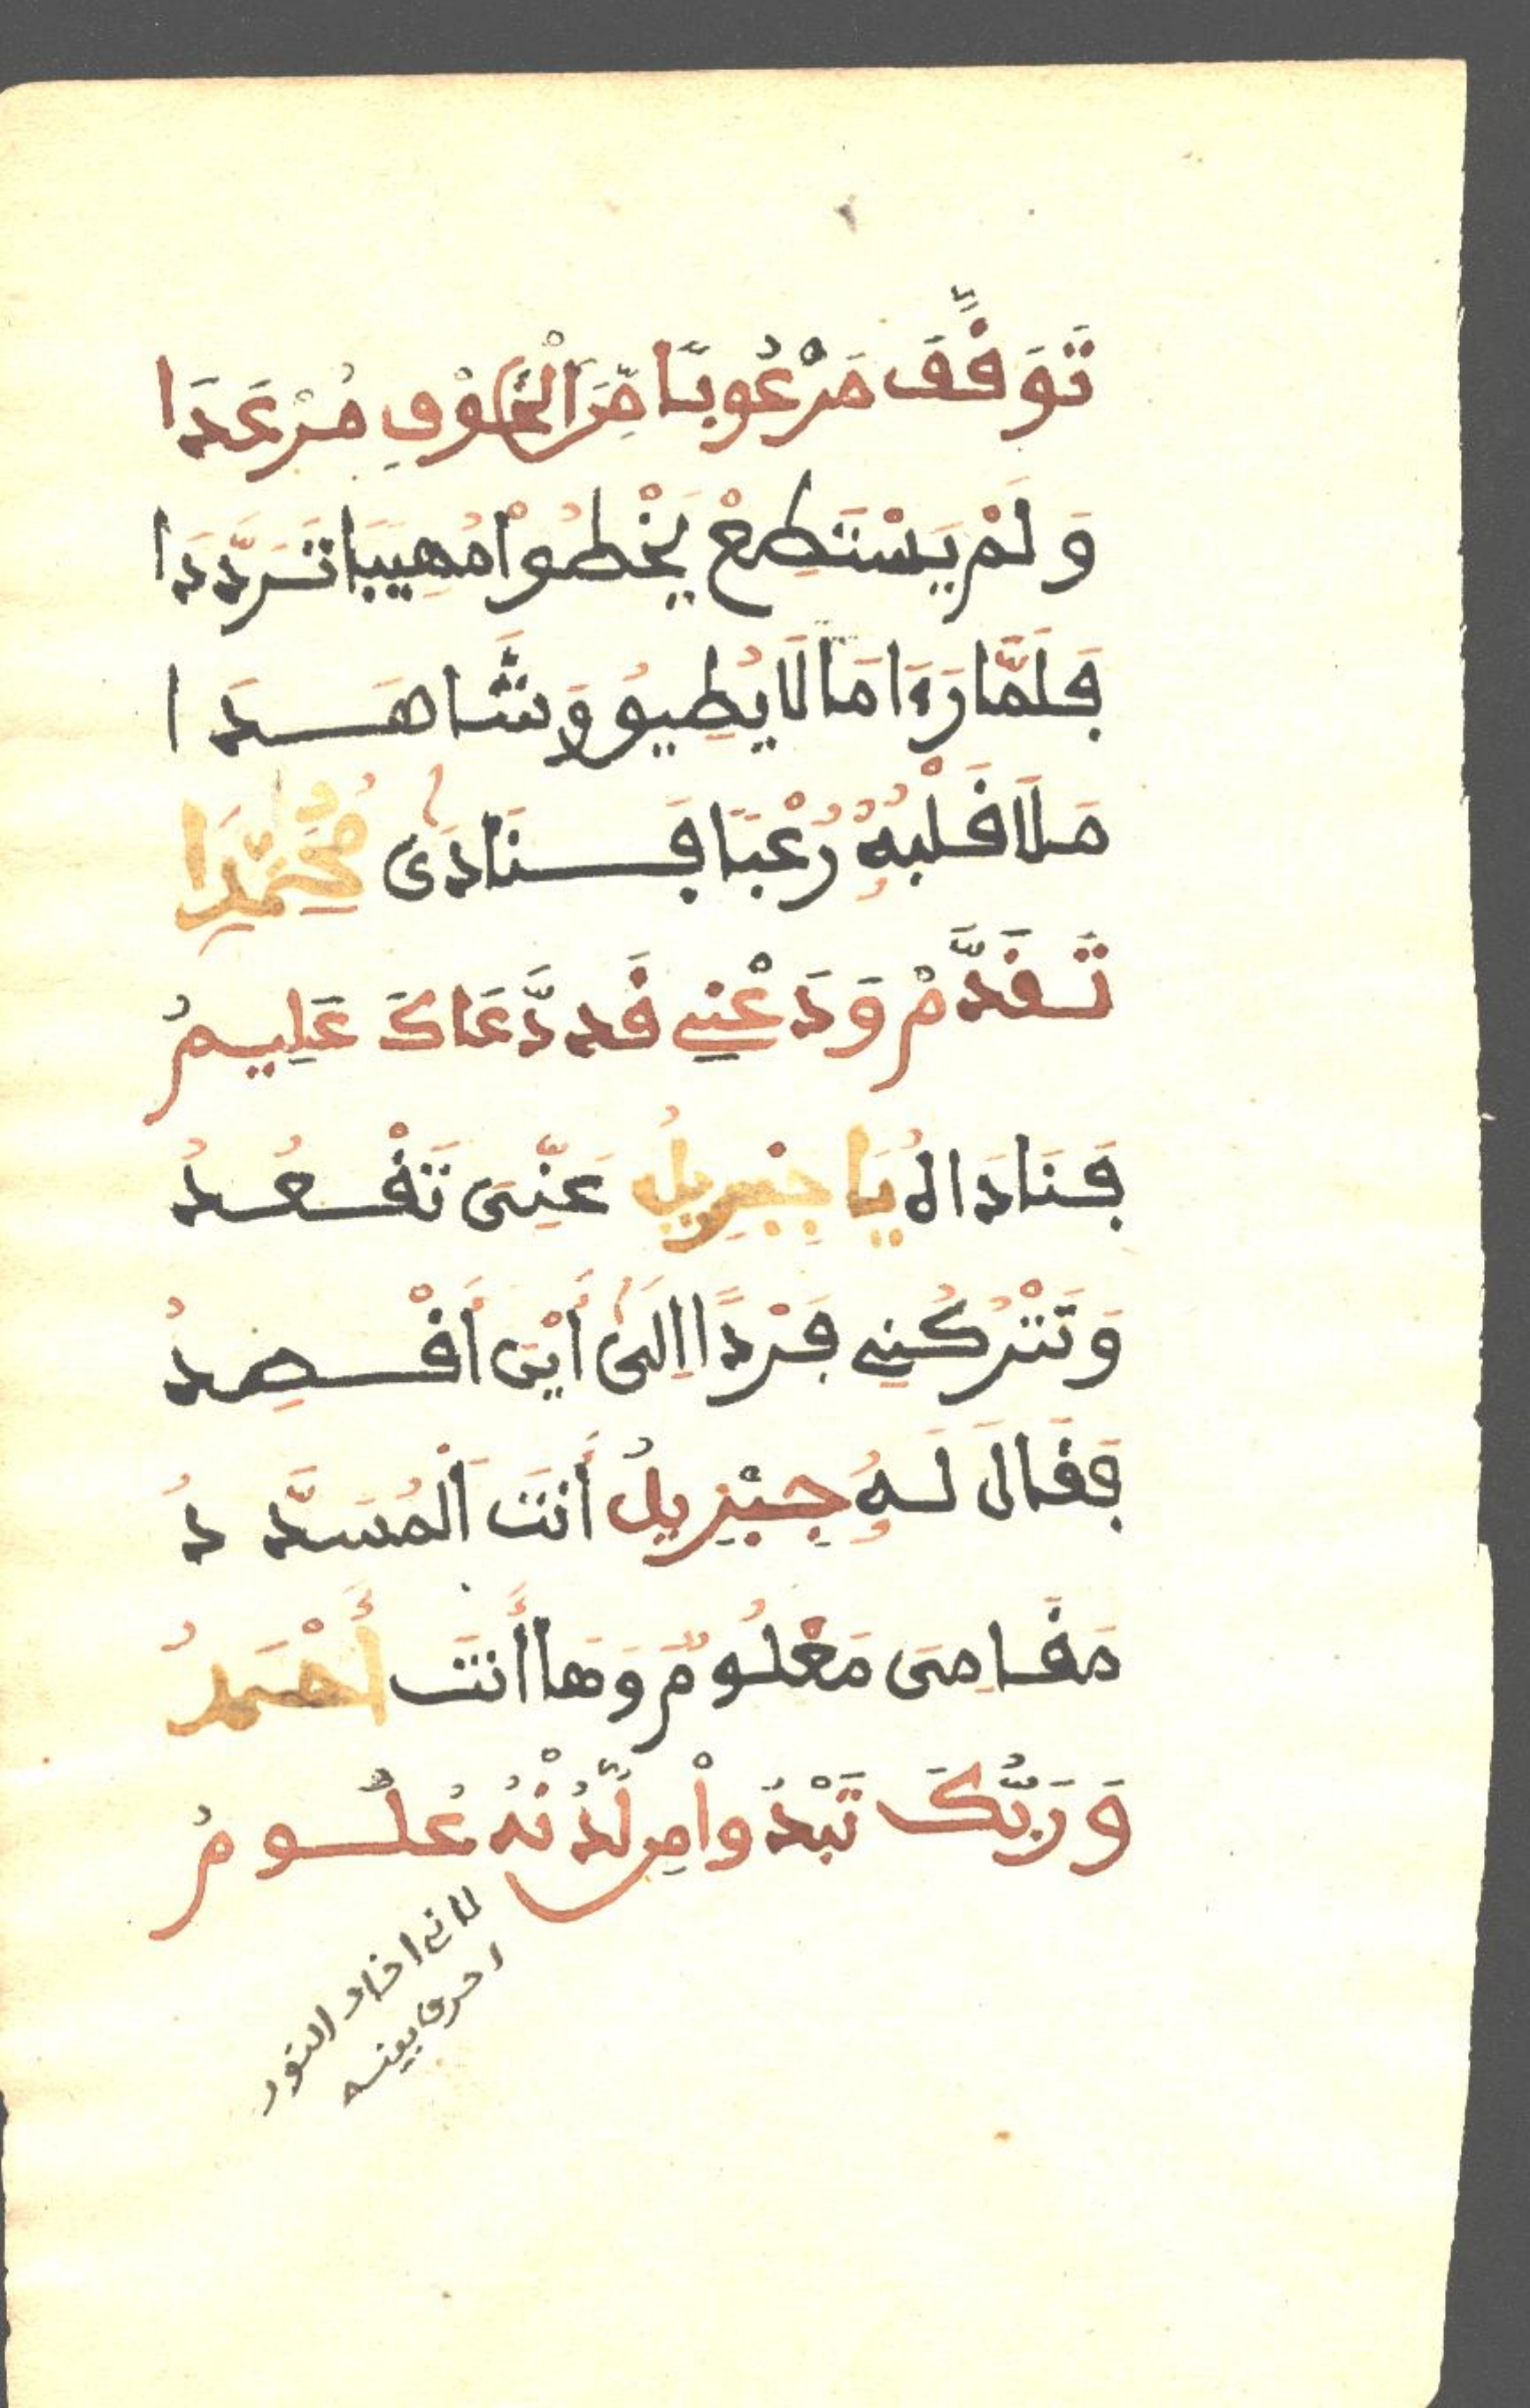 تَوَقَّفَ مَرْعُوبًا مِّنَ الْخَوْفِ مُرْعَدَا
وَلَمْ يَسْتَطِعْ يَخْطُواْ مُهِيبَا تَرَدَّدَا
فَلَمَّا رَءَا مَا لَا يُطِيقُ وَشَّاهَدَا
مَلَا قَلْبُهُ رُعْبًا فَنَادَىٰ مُحَمَّدَا
تَقَدَّمْ وَدَعْنِي قَد دَّعَاكَ عَلِيمُ
فَنَادَاهُ يَا جِبْرِيلُ عَنِّى تَقْعُدُ
وَتَتْرُكُنِي فَرْدًا إِلَىٰ أَيْنَ أَقْصِدُ
فَقَالَ لَهُ جِبْرِيلُ أَنتَ الْمُسَدَّدُ
مَقَامِى مَعْلُومٌ وَهَا أَنتَ أَحْمَدُ
وَرَبُّكَ تَبْدُواْ مِن لَّدُنْهُ عُلُومُ
لانى اخاف النور
احرق بينه